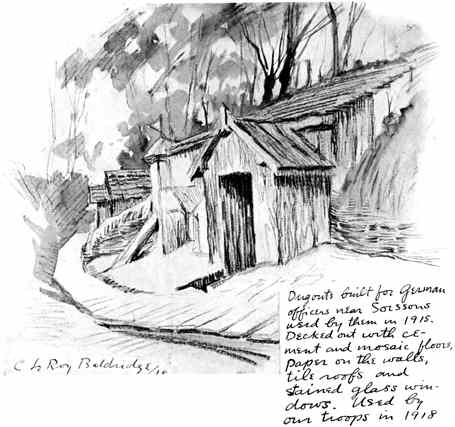 C LeRoy Baldridge/18
Dugouts built for German
officers near Soissons
used by them in 1915.
Decked out with ce-
ment and mosaic floors,
paper on the walls,
tile roofs and
stained glass win-
dows. Used by
our troops in 1918